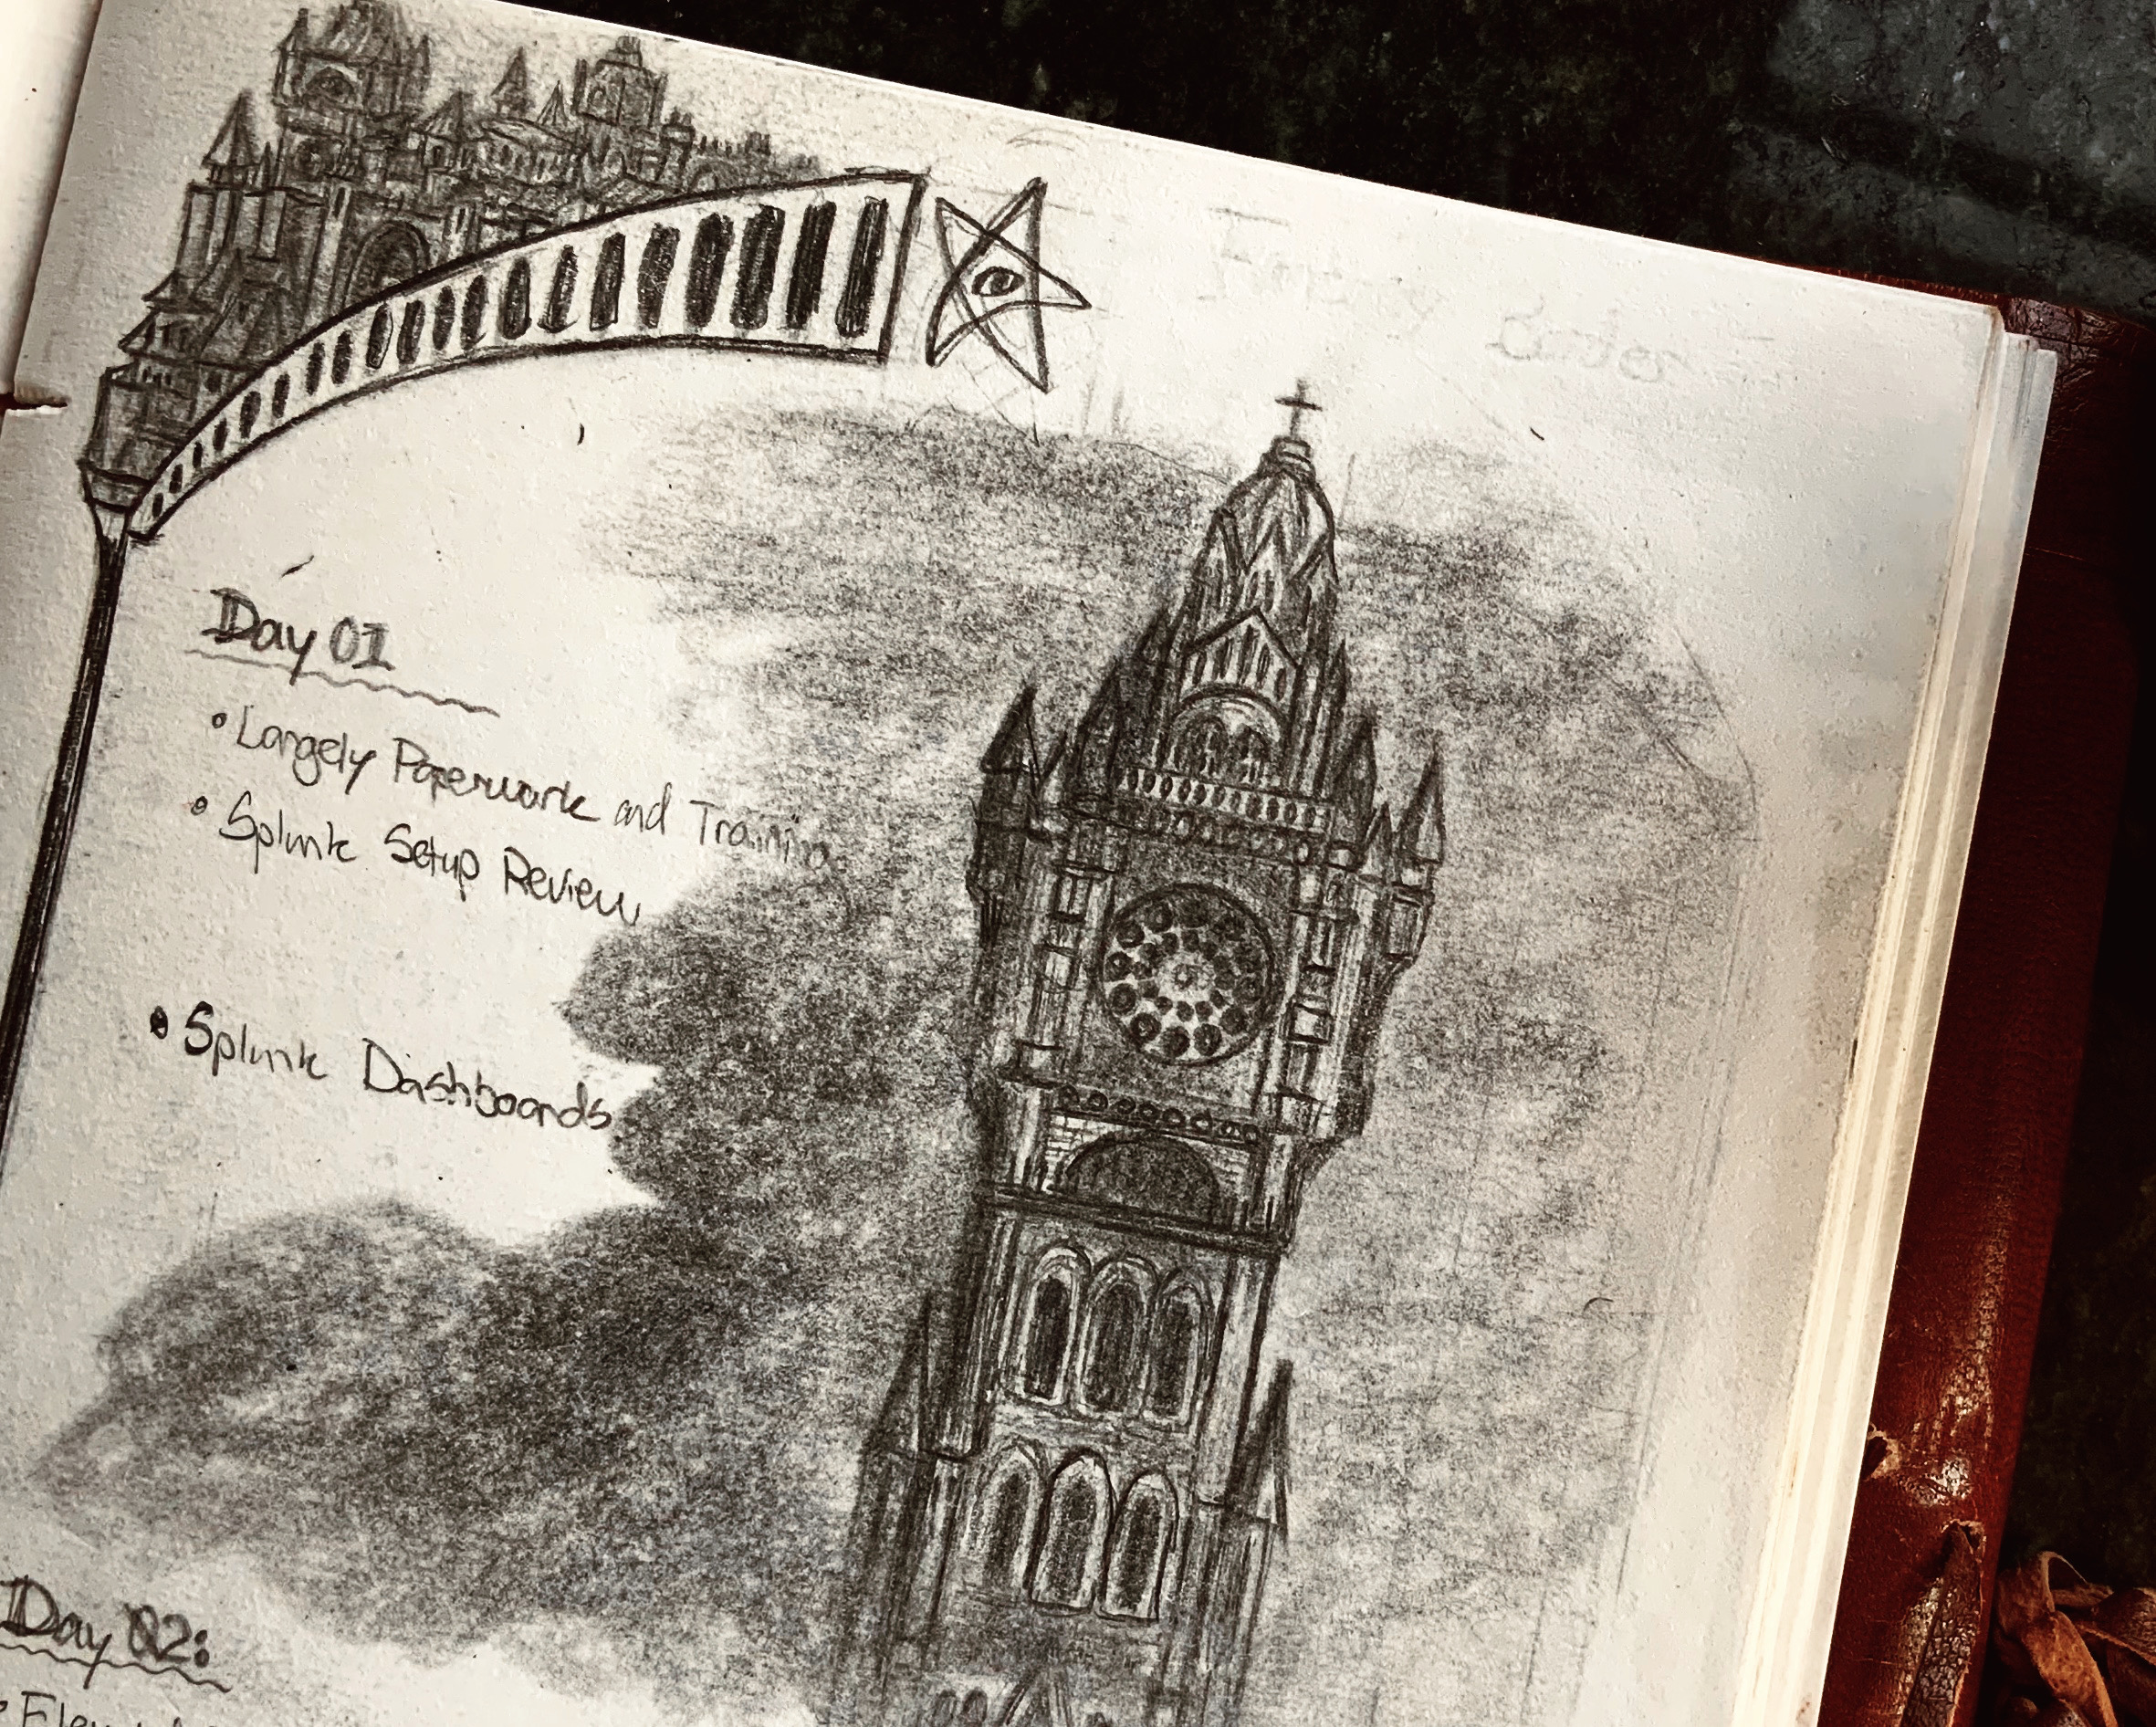 Day 01
• Largely Paperwork and Training
• Splunk Setup Review
• Splunk Dashboards
Day 02: